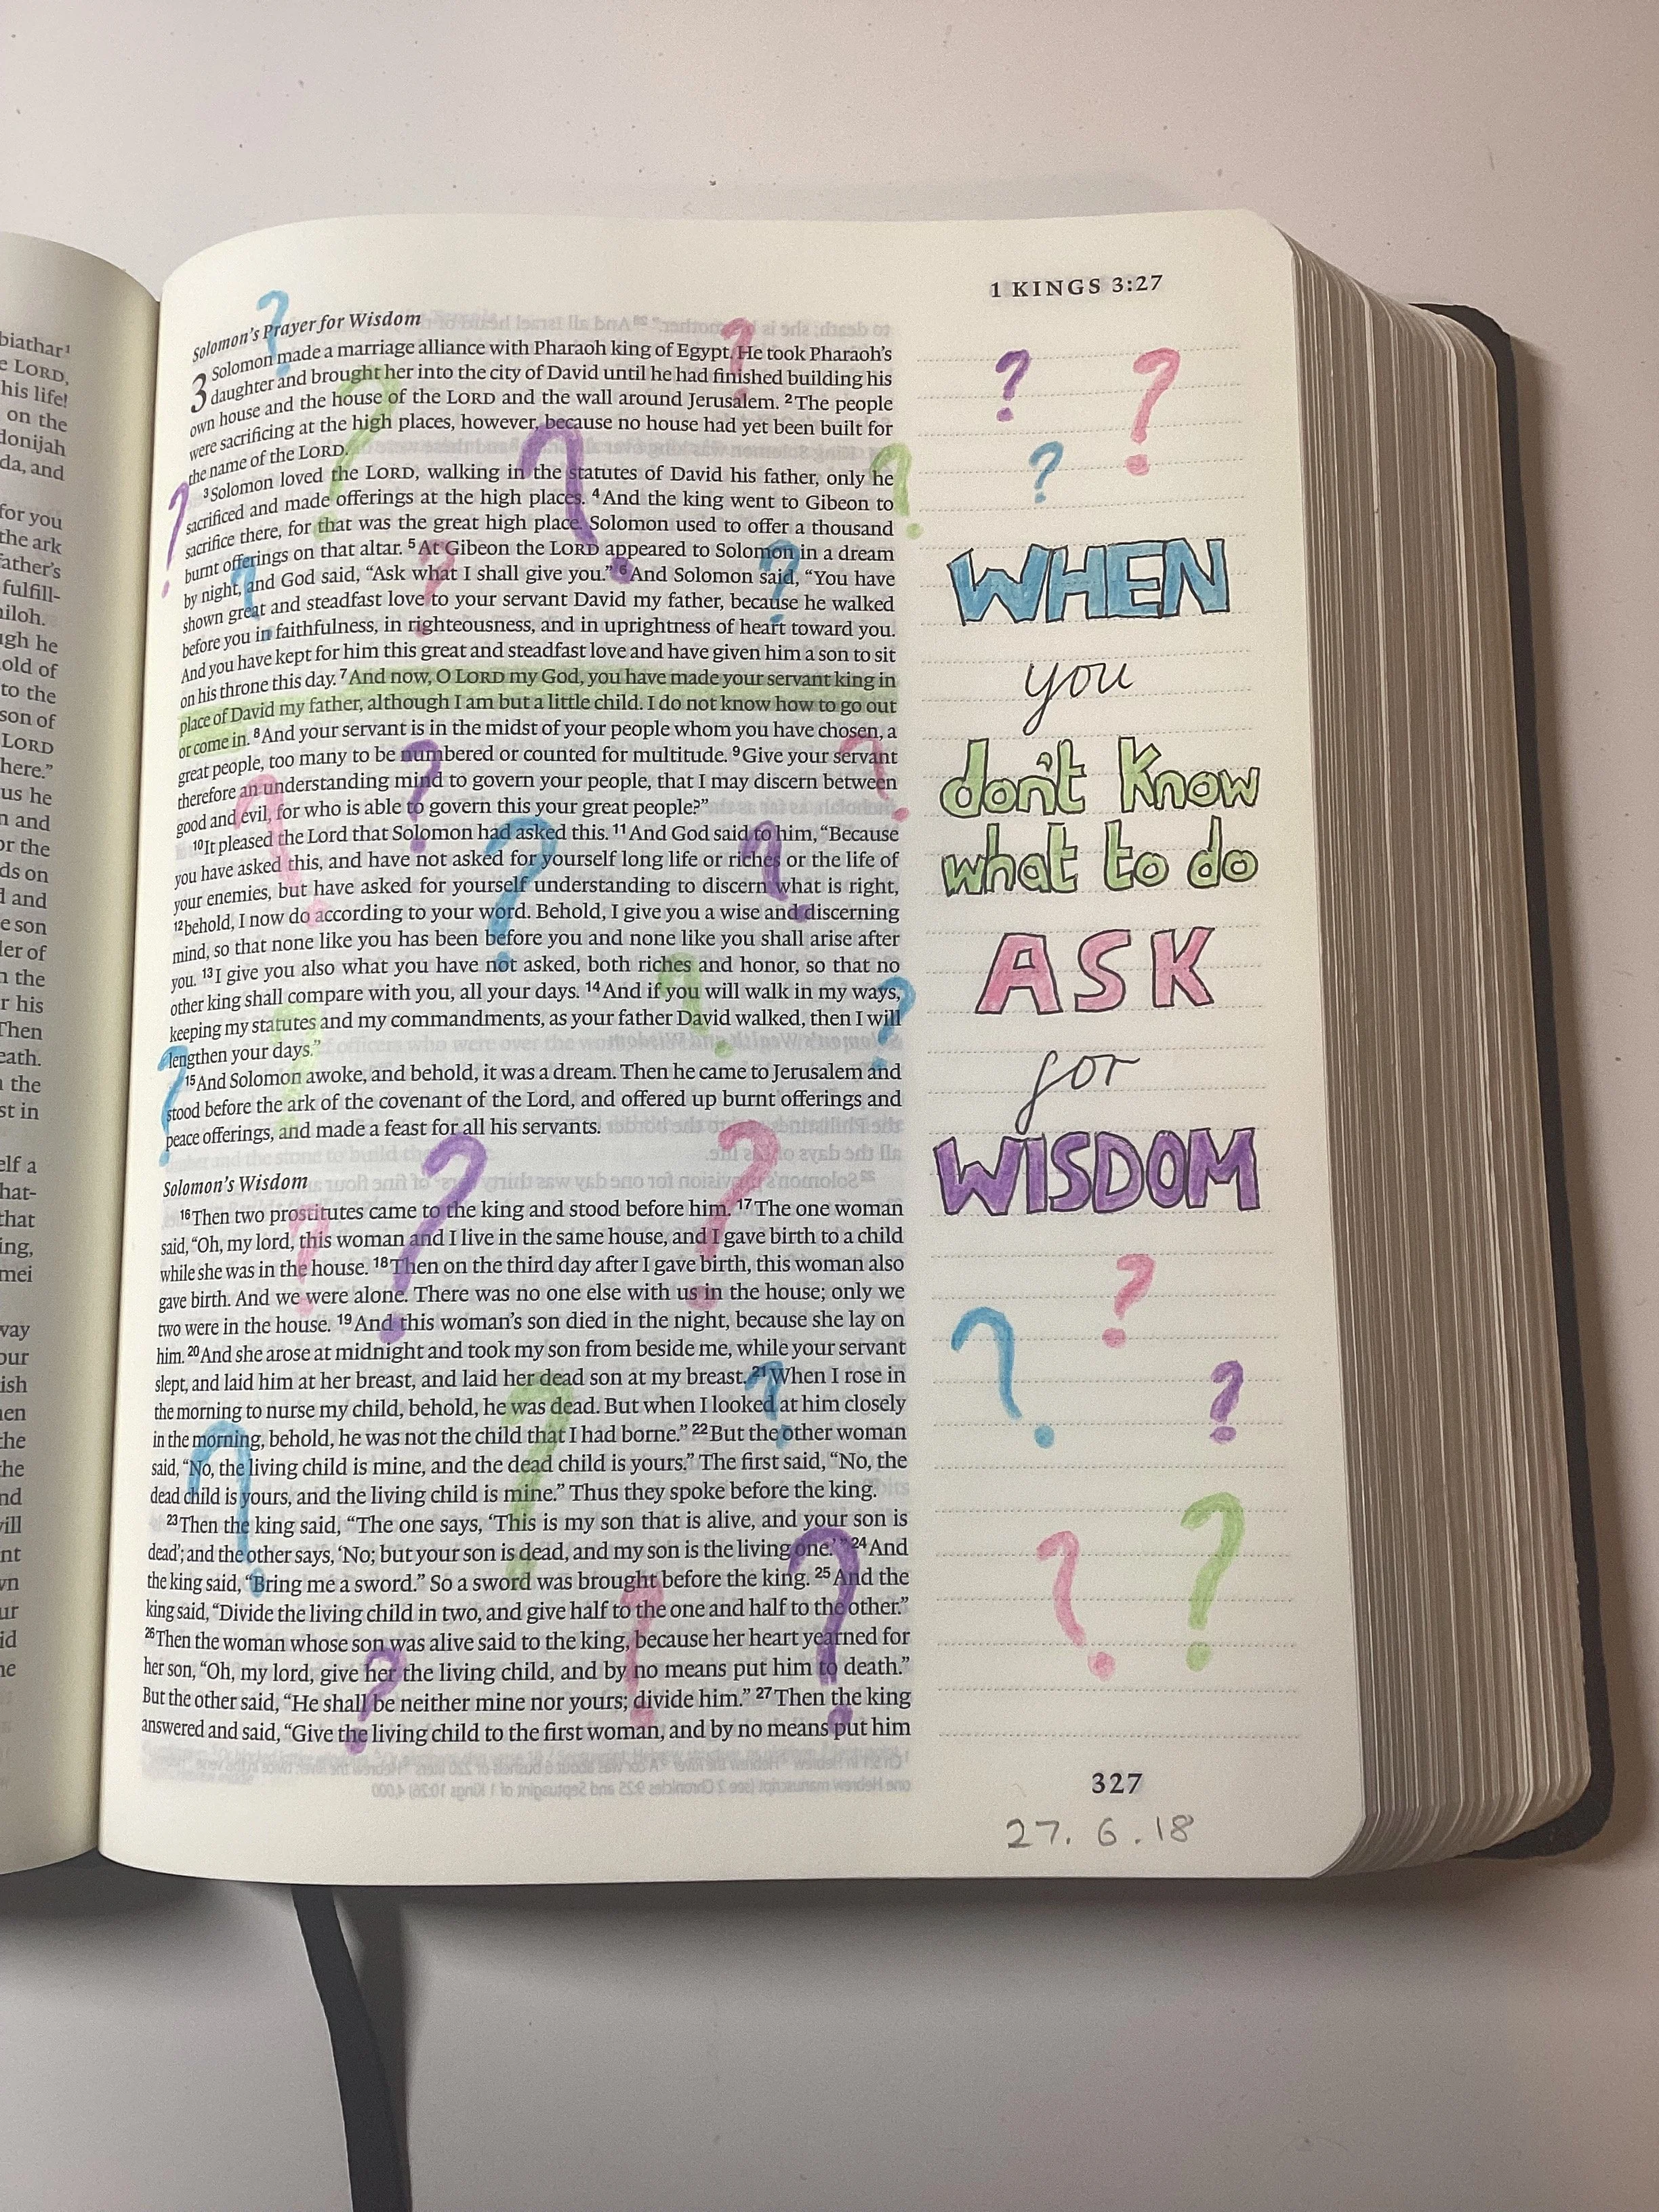 biathar¹
e LORD,
his life!
on the
donijah
da, and
for you
the ark
father's
fulfill-
hiloh.
ugh he
old of
to the
son of
LORD
here."
us he
n and
or the
ds on
d and
e son
der of
n the
r his
Then
eath.
the
st in
elf a
hat-
that
ing,
mei
way
our
ish
en
the
he
nd
will
nt
vn
ur
id
ne
1 KINGS 3:27
Solomon's Prayer for Wisdom
3 Solomon made a marriage alliance with Pharaoh king of Egypt. He took Pharaoh's
daughter and brought her into the city of David until he had finished building his
own house and the house of the LORD and the wall around Jerusalem. ²The people
were sacrificing at the high places, however, because no house had yet been built for
the name of the LORD.
³Solomon loved the LORD, walking in the statutes of David his father, only he
sacrificed and made offerings at the high places. ⁴And the king went to Gibeon to
sacrifice there, for that was the great high place. Solomon used to offer a thousand
burnt offerings on that altar. ⁵At Gibeon the LORD appeared to Solomon in a dream
by night, and God said, “Ask what I shall give you.” ⁶And Solomon said, “You have
shown great and steadfast love to your servant David my father, because he walked
before you in faithfulness, in righteousness, and in uprightness of heart toward you.
And you have kept for him this great and steadfast love and have given him a son to sit
on his throne this day. ⁷And now, O LORD my God, you have made your servant king in
place of David my father, although I am but a little child. I do not know how to go out
or come in. ⁸And your servant is in the midst of your people whom you have chosen, a
great people, too many to be numbered or counted for multitude. ⁹Give your servant
therefore an understanding mind to govern your people, that I may discern between
good and evil, for who is able to govern this your great people?”
¹⁰It pleased the Lord that Solomon had asked this. ¹¹And God said to him, “Because
you have asked this, and have not asked for yourself long life or riches or the life of
your enemies, but have asked for yourself understanding to discern what is right,
¹²behold, I now do according to your word. Behold, I give you a wise and discerning
mind, so that none like you has been before you and none like you shall arise after
you. ¹³I give you also what you have not asked, both riches and honor, so that no
other king shall compare with you, all your days. ¹⁴And if you will walk in my ways,
keeping my statutes and my commandments, as your father David walked, then I will
lengthen your days.”
¹⁵And Solomon awoke, and behold, it was a dream. Then he came to Jerusalem and
stood before the ark of the covenant of the Lord, and offered up burnt offerings and
peace offerings, and made a feast for all his servants.
Solomon's Wisdom
¹⁶Then two prostitutes came to the king and stood before him. ¹⁷The one woman
said, “Oh, my lord, this woman and I live in the same house, and I gave birth to a child
while she was in the house. ¹⁸Then on the third day after I gave birth, this woman also
gave birth. And we were alone. There was no one else with us in the house; only we
two were in the house. ¹⁹And this woman's son died in the night, because she lay on
him. ²⁰And she arose at midnight and took my son from beside me, while your servant
slept, and laid him at her breast, and laid her dead son at my breast. ²¹When I rose in
the morning to nurse my child, behold, he was dead. But when I looked at him closely
in the morning, behold, he was not the child that I had borne.” ²²But the other woman
said, “No, the living child is mine, and the dead child is yours.” The first said, “No, the
dead child is yours, and the living child is mine.” Thus they spoke before the king.
²³Then the king said, “The one says, ‘This is my son that is alive, and your son is
dead’; and the other says, ‘No; but your son is dead, and my son is the living one.’” ²⁴And
the king said, “Bring me a sword.” So a sword was brought before the king. ²⁵And the
king said, “Divide the living child in two, and give half to the one and half to the other.”
²⁶Then the woman whose son was alive said to the king, because her heart yearned for
her son, “Oh, my lord, give her the living child, and by no means put him to death.”
But the other said, “He shall be neither mine nor yours; divide him.” ²⁷Then the king
answered and said, “Give the living child to the first woman, and by no means put him
? ?
?
WHEN
you
don't know
what to do
ASK
for
WISDOM
?
? ?
? ?
327
27. 6. 18